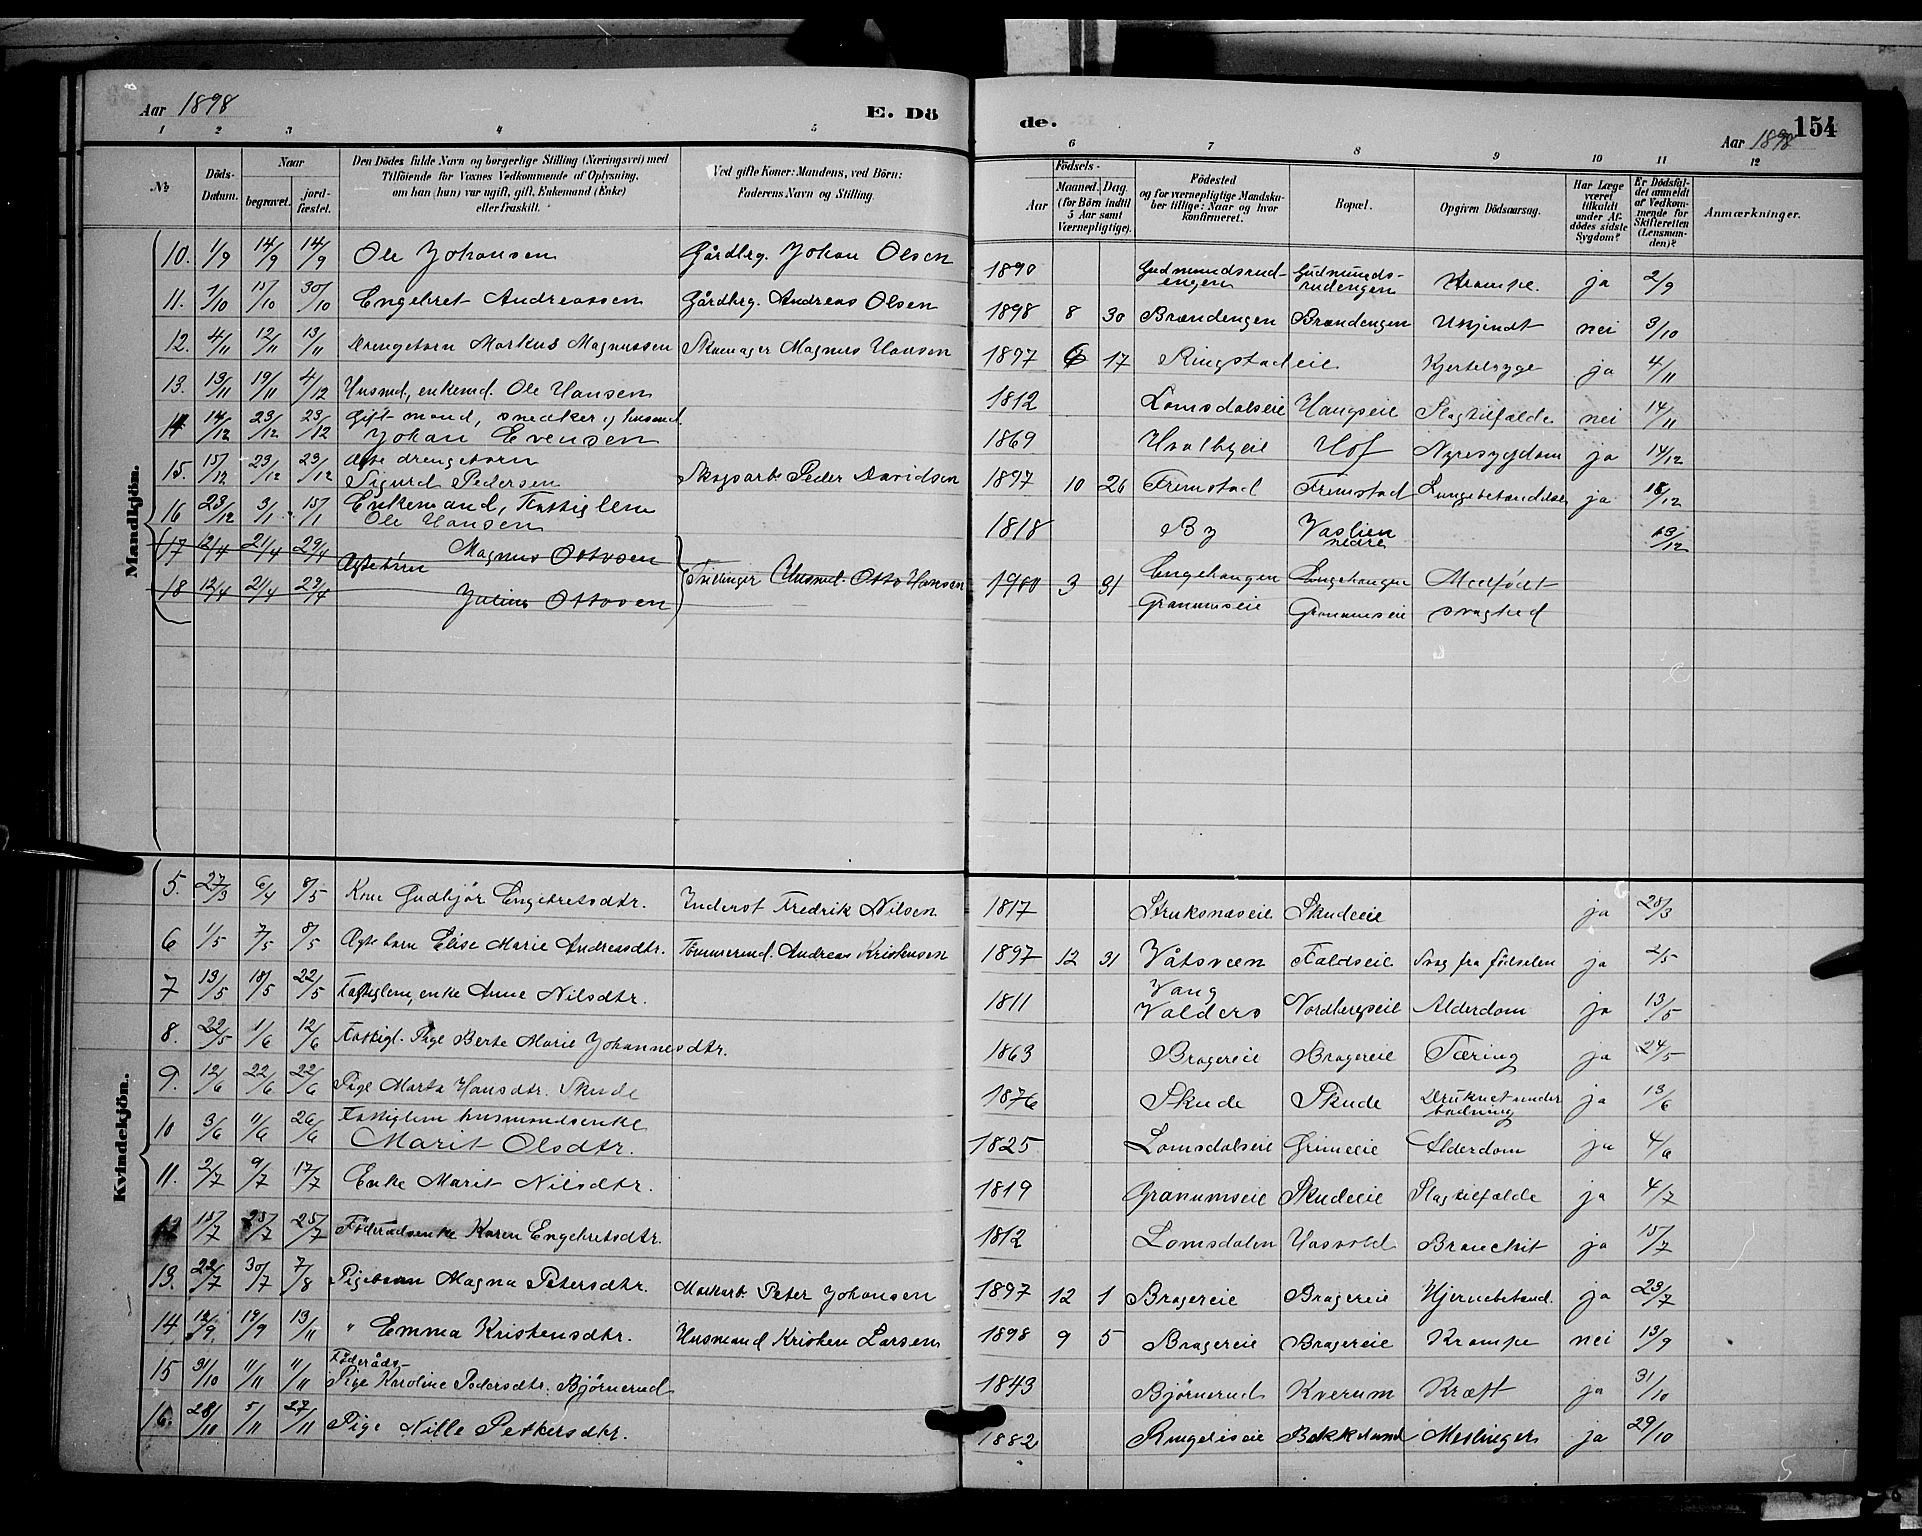 Aar 1898 E. Dö de. 154
Aar 1898
1 2 3 4 5 6 7 8 9 10 11 12
No Döds-Datum. Naar begravet. jord-fæstet. Den Dödes fulde Navn og borgerlige Stilling (Næringsvei) med Tilföiende for Voxnes Vedkommende af Oplysning, om han (hun) var ugift, gift, Enkemand (Enke) eller fraskilt. Ved gifte Koner: Mandens, ved Börn: Faderens Navn og Stilling. Födsels- Aar Maaned. Dag (for Börn indtil 5 Aar samt Værnepligtige). Födested og for værnepligtige Mandska-ber tillige: Naar og hvor konfirmeret. Bopæl. Opgiven Dödsaarsag. Har Læge været tilkaldt under Af-dödes sidste Sygdom? Er Dödsfal-det anmeldt af Vedkom-mende for Skifteretten (Lensman-den)? Anmærkninger.
Mandkjön.
10. 1/9 14/9 14/9 Ole Johansen Gårdbrg. Johan Olsen 1890 Gudmundsrud-engen Gudmunds-rudengen Krampe. ja 2/9
11. 1/10 15/10 30/10 Engebret Andreassen Gårdbrg. Andreas Olsen 1898 8 30 Brændengen Brændengen Ukjendt nei 3/10
12. 4/11 12/11 13/11 Drengebarn Markus Magnussen Skomager Magnus Hansen 1897 6 17 Ringstadeie Kjertelsyge ja 4/11
13. 13/11 19/11 4/12 Husmd, enkemd. Ole Hansen 1812 Lomsdalseie Haugseie Slagtilfælde nei 14/11
14 14/12 23/12 23/12 Gift mand, snedker og husmd. Johan Evensen 1869 Hvalbyeie Hof Nyresygdom ja 14/12
15. 15/12 23/12 23/12 Ægte drengebarn Sigurd Pedersen Skogsarb. Peder Davidsen 1897 10 26 Fremstad Fremstad Lungebetændelse ja 18/12
16 23/12 3/1 15/1 Enkemand, Fattiglem Ole Hansen 1818 By Vaslien nedre 23/12
17 12/4 21/4 29/4 Ægte børn Magnus Ottosen
18 12/4 21/4 29/4 Julius Ottosen Tvillinger Husmd. Otto Hansen 1900 3 31 Engehaugen Granumseie Engehaugen Granumseie Medfødt svaghed
Kvindekjön.
5. 27/3 6/4 8/5 Kone Gudbjör Engebretsdtr. Inderst Fredrik Nilsen 1817 Struksnæseie Skudeeie ja 28/3
6 1/5 7/5 8/5 Ægte barn Elise Marie Andreasdtr. Tømmermd. Andreas Kristensen 1897 12 31 Våtsveen Faldseie Svag fra fødselen ja 2/5
7 13/5 18/5 22/5 Fattiglem, enke Anne Nilsdtr. 1811 Vang Valders Nordbergseie Alderdom ja 13/5
8. 22/5 1/6 12/6 Fattigl. Pige Berte Marie Johannesdtr. 1863 Bragereie Bragereie Tæring ja 24/5
9. 12/6 22/6 22/6 Pige Marta Hansdtr. Skude 1876 Skude Skude Druknet under badning ja 13/6
10 3/6 11/6 26/6 Fattiglem husmandsenke Marit Olsdtr. 1825 Lomsdalseie Grimeeie Alderdom ja 4/6
11. 2/7 9/7 17/7 Enke Marit Nilsdtr. 1819 Granumseie Skudeeie Slagtilfælde ja 4/7
12 15/7 25/7 25/7 Føderådsenke Karen Engebretsdtr. 1812 Lomsdalen Hasvold Bronchit ja 15/7
13. 22/7 30/7 7/8 Pigebarn Magna Petersdtr. Markarb. Peter Johansen 1897 12 1 Bragereie Bragereie Hjernebetænd. ja 23/7
14 12/9. 19/9 13/11 " Emma Kristensdtr. Husmand Kristen Larsen 1898 9 5 Bragereie Bragereie Krampe nei 13/9
15 31/10 11/11 11/11 Føderåds-Pige Karoline Pedersdtr. Bjørnerud 1843 Bjørnerud Kverum Kræft ja 31/10
16. 28/10 5/11 27/11 Pige Nille Pettersdtr. 1882 Ringeliseie Bakkelund Meslinger ja 29/10